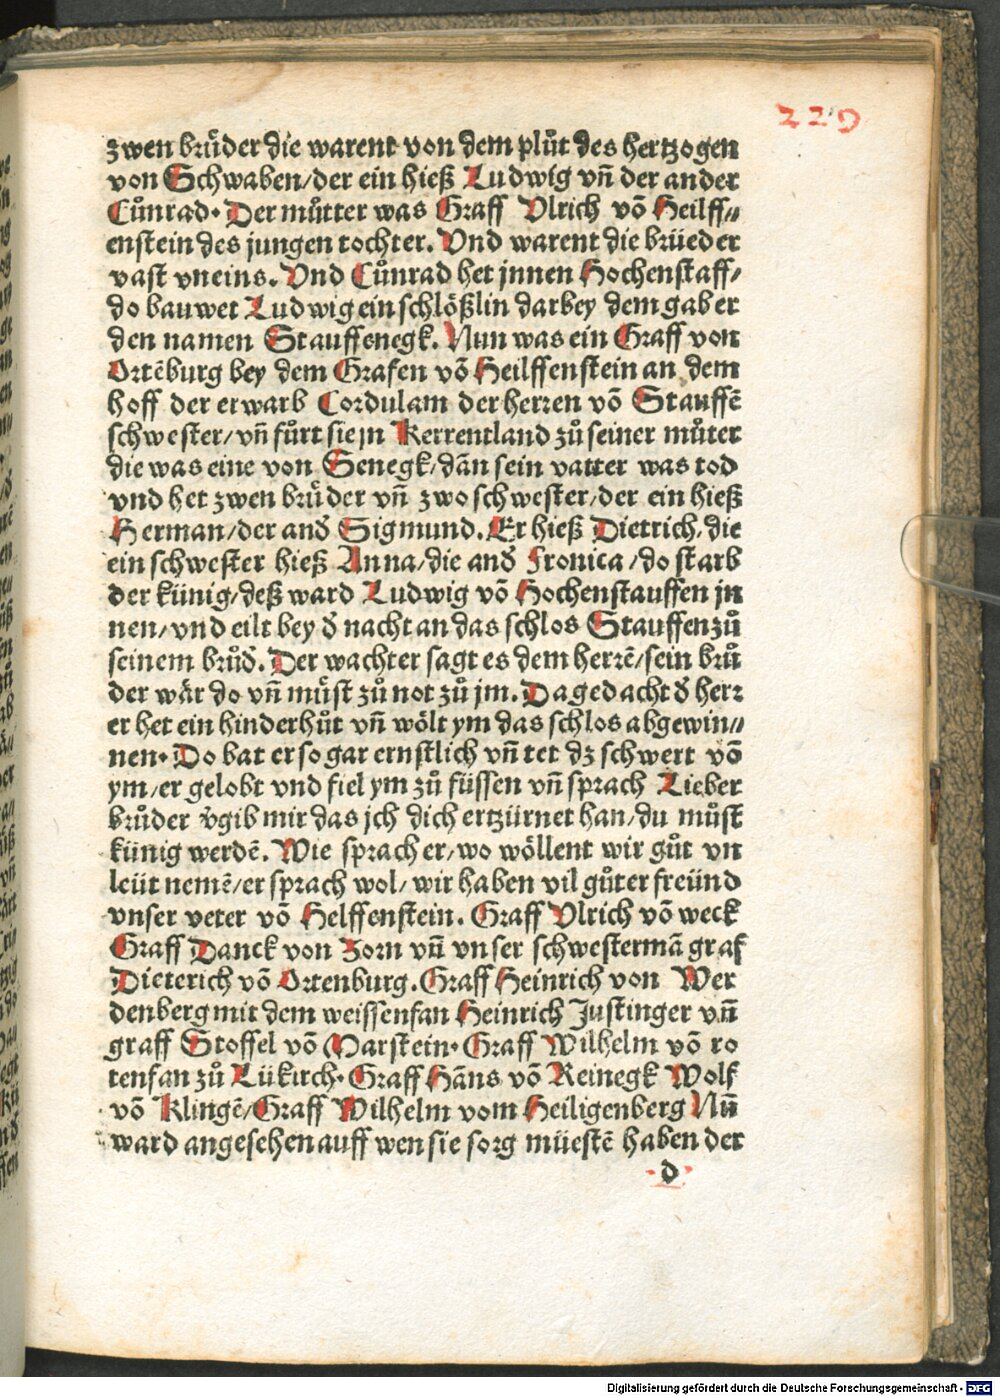 229
zwen brůder die warent von dem plůt des hertzogen
von Schwaben/der ein hieß Ludwig vñ der ander
Cůnrad. Der můtter was Graff Vlrich võ Heilff//
enstein des jungen tochter. Vnd warent die brüeder
vast vneins. Vnd Cůnrad het jnnen Hochenstaff/
do bauwet Ludwig ein schlößlin darbey dem gab er
den namen Stauffenegk. Nun was ein Graff von
Ortẽburg bey dem Grafen võ Heilffenstein an dem
hoff der erwarb Cordulam der herren võ Stauffẽ
schwester/vñ fůrt sie jn Kerrentland zů seiner můter
die was eine von Senegk/dãn sein vatter was tod
vnd het zwen brůder vñ zwo schwester/der ein hieß
Herman/der and̕ Sigmund. Er hieß Dietrich/die
ein schwester hieß Anna/die and̕ Fronica/do starb
der künig/deß ward Ludwig võ Hochenstauffen jn
nen/vnd eilt bey d̕ nacht an das schlos Stauffen zů
seinem brůd̕. Der wachter sagt es dem herrẽ/sein brů
der wår do vñ můst zů not zů jm. Da gedacht d̕ herr
er het ein hinderhůt vñ wölt ym das schlos abgewin//
nen. Do bat er so gar ernstlich vñ tet dz schwert võ
ym/er gelobt vnd fiel ym zů füssen vñ sprach Lieber
brůder v̕gib mir das jch dich ertzürnet han/du můst
künig werdẽ. Wie sprach er/wo wöllent wir gůt vn
leüt nemẽ/er sprach wol/wir haben vil gůter freünd
vnser veter võ Helffenstein. Graff Vlrich võ weck
Graff Danck von Zorn vñ vnser schwestermã graf
Dieterich võ Ortenburg. Graff Heinrich von Wer
denberg mit dem weissenfan Heinrich Justinger vñ
graff Stoffel võ Marstein. Graff Wilhelm võ ro
tenfan zů Lükirch. Graff Hãns võ Reinegk Wolf
võ Klingẽ/Graff Wilhelm vom Heiligenberg Nũ
ward angesehen auff wen sie sorg müestẽ haben der
d
Digitalisierung gefördert durch die Deutsche Forschungsgemeinschaft - DFG